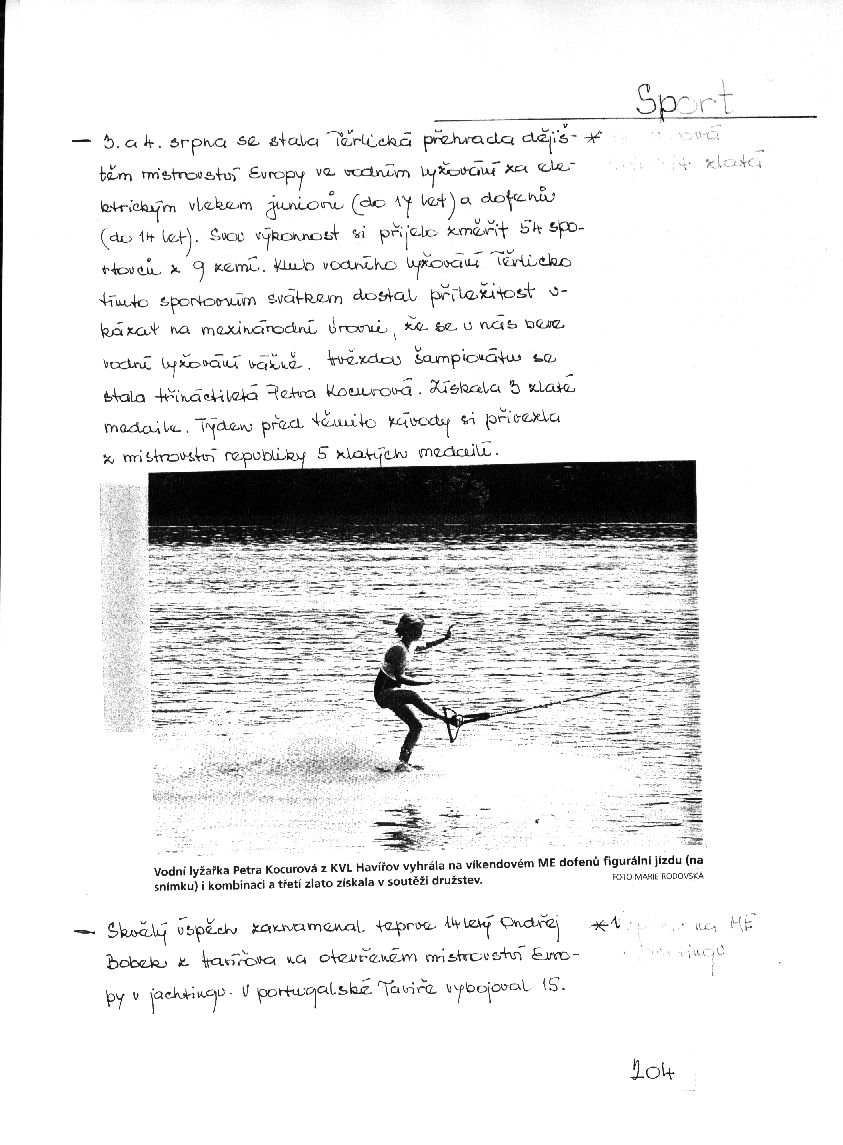 Sport
— 3. a 4. srpna se stala Těrlická přehrada dějiš- *
těm mistrovství Evropy ve vodním lyžování za ele-
ktrickým vlekem juniorů (do 17 let) a dofenů
(do 14 let). Svou výkonnost si přijelo změřit 54 spo-
rtovců z 9 zemí. Klub vodního lyžování Těrlicko
tímto sportovním svátkem dostal příležitost u-
kázat na mezinárodní úrovni, že se u nás bere
vodní lyžování vážně. Hvězdou šampionátu se
stala třináctiletá Petra Kocurová. Získala 3 zlaté
medaile. Týden před těmito závody si přivezla
z mistrovství republiky 5 zlatých medailí.
zlatá
Vodní lyžařka Petra Kocurová z KVL Havířov vyhrála na víkendovém ME dofenů figurální jízdu (na
snímku) i kombinaci a třetí zlato získala v soutěži družstev.
FOTO MARIE RODOVSKÁ
— Skvělý úspěch zaznamenal teprve 14letý Ondřej *
Bobek z Havířova na otevřeném mistrovství Evro-
py v jachtingu. V portugalské Taviře vybojoval 15.
na ME
204